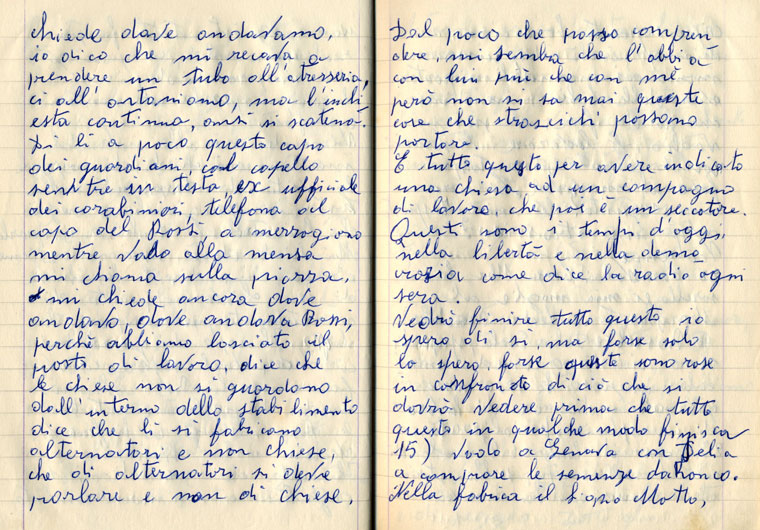 chiede dove andavamo,
io dico che mi recavo a
prendere un tubo all'atresseria,
ci all'ontaniamo, ma l'inchi
esta continua, anzi si scatena.
Di li a poco questo capo
dei guardiani, col capello
sempre in testa, ex ufficiale
dei carabinieri, telefona al
capo del Rossi, a mezzogiorno
mentre vado alla mensa
mi chiama sulla piazza,
mi chiede ancora dove
andavo, dove andava Rossi,
perchè abbiamo lasciato il
posto di lavoro, dice che
le chiese non si guardano
dall'interno dello stabilimento
dice che li si fabricano
alternatori e non chiese,
che di alternatori si deve
parlare e non di chiese.
Dal poco che posso compren
dere, mi sembra che l'abbia
con lui più che con mè
però non si sa mai queste
cose che strascichi possano
portare.
E tutto questo per avere indicato
una chiesa ad un compagno
di lavoro, che poi è un seccatore.
Questi sono i tempi d'oggi,
nella libertà e nella demo
crazia come dice la radio ogni
sera.
Vedrò finire tutto questo io
spero di si, ma forse solo
lo spero, forse queste sono rose
in confronto di ciò che si
dovrà vedere prima che tutto
questo in qualche modo finisca
15) Vado a Genova con Delia
a comprare le semenze da Ronco.
Nella fabrica il s
Motto,